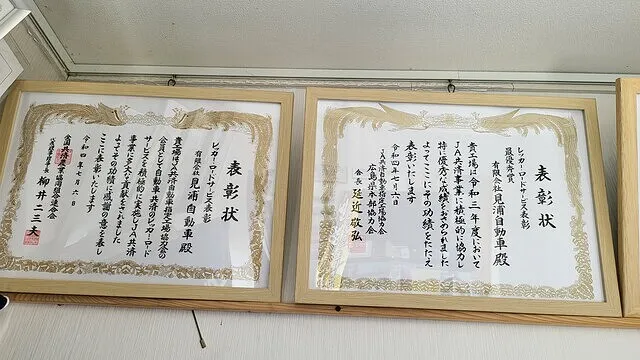 表彰状
レッカー・ロードサービス表彰
最優秀賞
有限会社 見浦自動車 殿
貴工場は令和三年度において
JA共済事業に積極的に協力し
特に優秀な成績をおさめられました
よってここにその功績をたたえ
表彰いたします
令和四年七月一日
JA共済自動車指定工場協力会
広島県本部協力会
会長 延近敬弘
表彰状
レッカー・ロードサービス表彰
有限会社 見浦自動車 殿
貴工場はJA共済自動車指定工場協力会の
会員として自動車共済のレッカーロード
サービスを積極的に実施しJA共済
事業に多大な貢献をされました
よってその功績に感謝の意を表し
ここに表彰いたします
令和四年七月六日
全国共済農業協同組合連合会
柳井二三夫